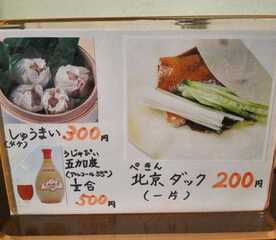 しゅうまい 300円
(4ケ)
うじゃぴい
五加皮
(アルコール35°)
半合
500円
ぺきん
北京ダック 200円
(一片)